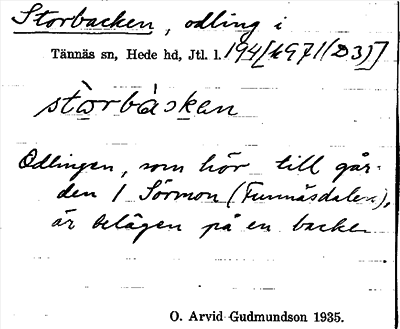 Storbacken, odling i
Tännäs sn, Hede hd, Jtl. l. 194[k971(D3)]
stòrbàsken
Odlingen, som hör till går-
den 1 Sörmon (Funnäsdalen),
är belägen på en backe
O. Arvid Gudmundson 1935.